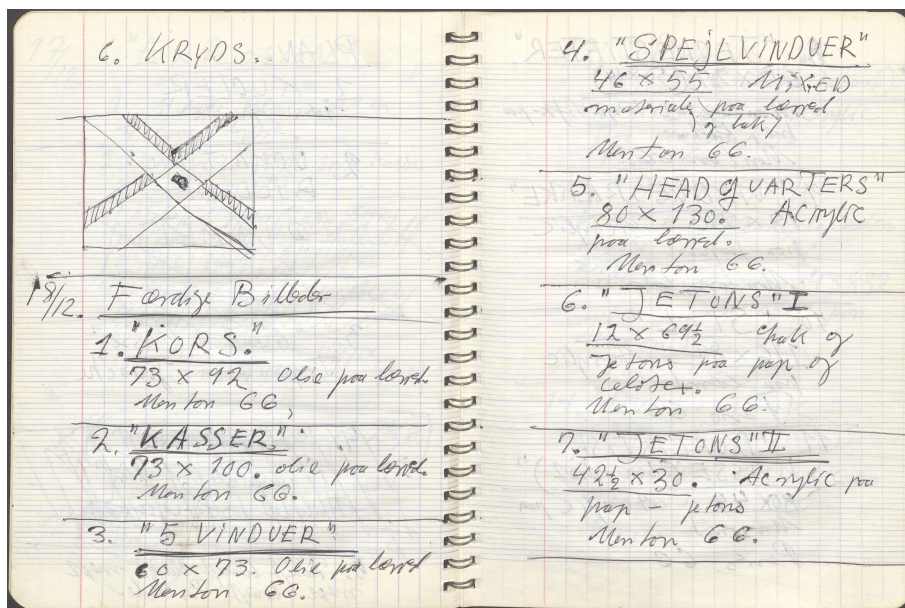 6. KRYDS.
18/12. Færdige Billeder
1. "KORS."
73 × 92 Olie paa lærred.
Menton 66.
2. "KASSER."
73 × 100. olie paa lærred.
Menton 66.
3. "5 VINDUER"
60 × 73. Olie paa lærred
Menton 66.
4. "SPEJLVINDUER"
46 × 55 MIXED
materiale paa lærred
og lak)
Menton 66.
5. "HEADQUARTERS"
80 × 130. Acrylic
paa lærred.
Menton 66.
6. "JETONS" I
12 × 69½ og
Jetons paa pap og
Menton 66.
7. "JETONS" II
42½ × 30. Acrylic paa
pap – jetons
Menton 66.